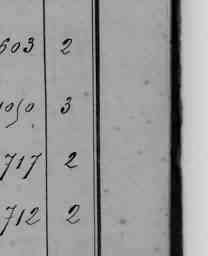 603 2
1050 3
717 2
712 2